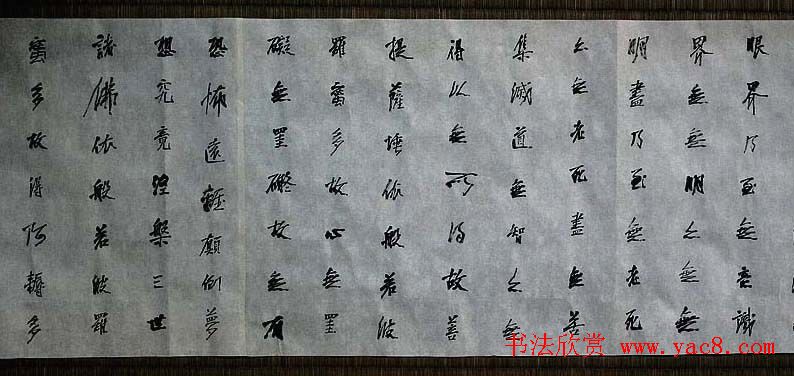 眼界乃至無意識
界無無明亦無無
明盡乃至無老死
亦無老死盡無苦
集滅道無智亦無
得以無所得故菩
提薩埵依般若波
羅蜜多故心無罣
礙無罣礙故無有
恐怖遠離顛倒夢
想究竟涅槃三世
諸佛依般若波羅
蜜多故得阿耨多
书法欣赏 www.yac8.com